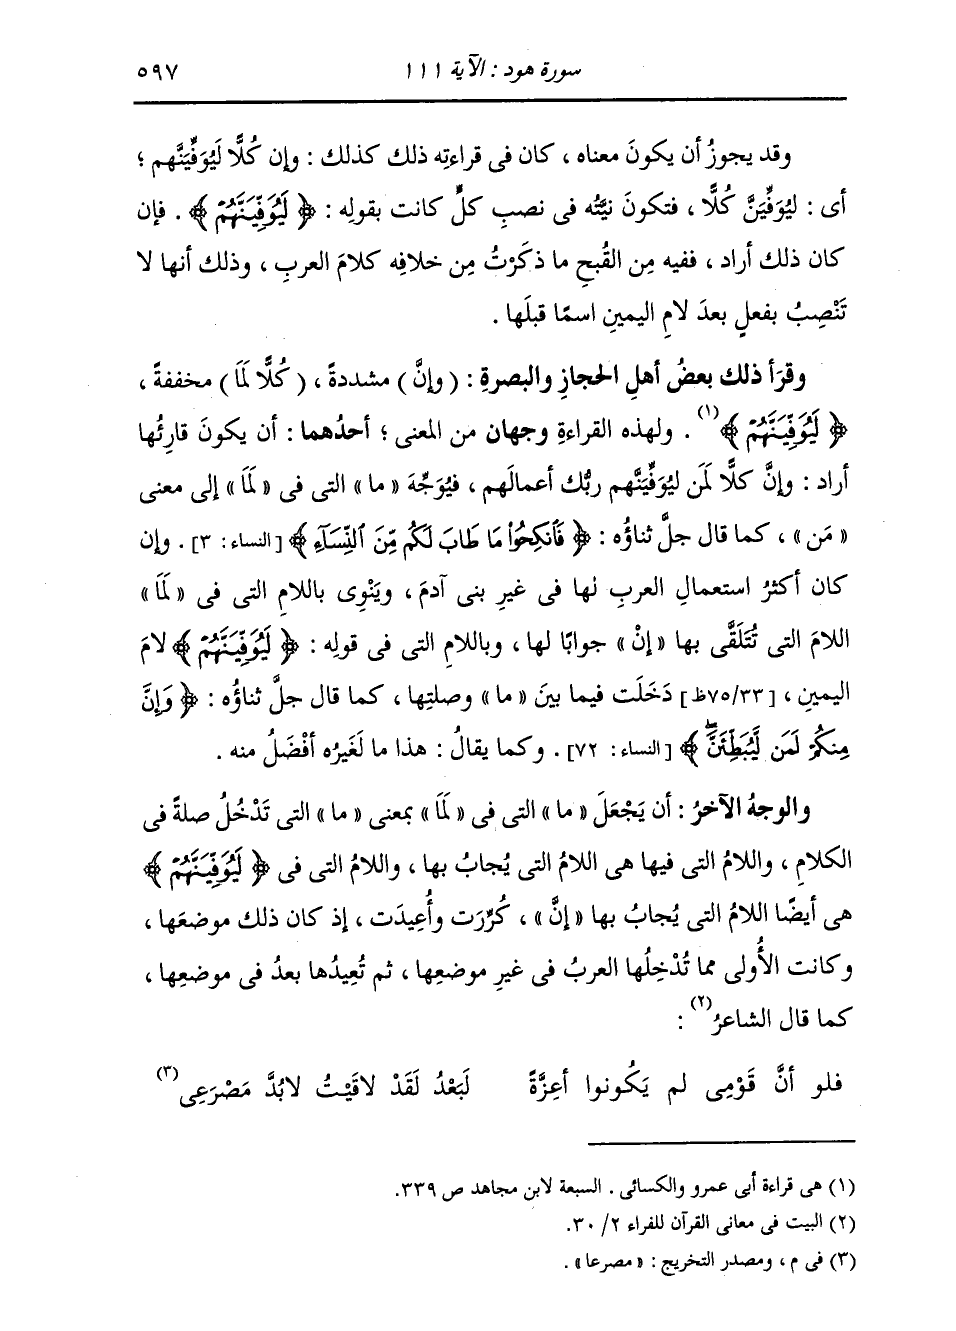 سورة هود : الآية ١١١ ٥٩٧
وقد يجوزُ أن يكونَ معناه ، كان فى قراءتِه ذلك كذلك : وإن كُلًّا لَيُوَفِّيَنَّهم ؛
أى : ليُوَفِّيَنَّ كُلًّا ، فتكونَ نيَّتُه فى نصبِ كلٍّ كانت بقولِه : ﴿ لَيُوَفِّيَنَّهُمْ ﴾ . فإن
كان ذلك أراد ، ففيه مِن القُبحِ ما ذكَرْتُ مِن خلافِه كلامَ العربِ ، وذلك أنها لا
تَنْصِبُ بفعلٍ بعدَ لامِ اليمينِ اسمًا قبلَها .
وقرَأ ذلك بعضُ أهلِ الحجازِ والبصرةِ : ( وإنَّ ) مشددةً ، ( كُلًّا لَمَا ) مخففةً ،
﴿ لَيُوَفِّيَنَّهُمْ ﴾(١) . ولهذه القراءةِ وجهان من المعنى ؛ أحدُهما : أن يكونَ قارئُها
أراد : وإنَّ كلًّا لَمَن ليُوَفِّيَنَّهم ربُّك أعمالَهم ، فيُوَجِّهَ « ما » التى فى « لَمَا » إلى معنى
« مَن » ، كما قال جلَّ ثناؤُه : ﴿ فَٱنكِحُوا۟ مَا طَابَ لَكُم مِّنَ ٱلنِّسَآءِ ﴾ [ النساء : ٣] . وإن
كان أكثرُ استعمالِ العربِ لها فى غيرِ بنى آدمَ ، ويَنْوِى باللامِ التى فى « لَمَا »
اللامَ التى تُتَلَقَّى بها « إنْ » جوابًا لها ، وباللامِ التى فى قولِه : ﴿ لَيُوَفِّيَنَّهُمْ ﴾ لامَ
اليمينِ ، [ ٧٥/٣٣ظ] دَخَلَت فيما بينَ « ما » وصلتِها ، كما قال جلَّ ثناؤُه : ﴿ وَإِنَّ
مِنكُمْ لَمَن لَّيُبَطِّئَنَّ ۖ ﴾ [ النساء : ٧٢] . وكما يقالُ : هذا ما لَغَيرُه أفْضَلُ منه .
والوجهُ الآخرُ : أن يَجْعَلَ « ما » التى فى « لَمَا » بمعنى « ما » التى تَدْخُلُ صلةً فى
الكلامِ ، واللامُ التى فيها هى اللامُ التى يُجابُ بها ، واللامُ التى فى ﴿ لَيُوَفِّيَنَّهُمْ ﴾
هى أيضًا اللامُ التى يُجابُ بها « إنَّ » ، كُرِّرَت وأُعِيدَت ، إذ كان ذلك موضعَها ،
وكانت الأُولى مما تُدْخِلُها العربُ فى غيرِ موضعِها ، ثم تُعِيدُها بعدُ فى موضعِها ،
كما قال الشاعرُ(٢) :
فلو أنَّ قَوْمِى لم يَكُونوا أعِزَّةً لَبَعْدُ لَقَدْ لاقَيْتُ لابُدَّ مَصْرَعِى(٣)
(١) هى قراءة أبى عمرو والكسائى . السبعة لابن مجاهد ص ٣٣٩.
(٢) البيت فى معانى القرآن للفراء ٢/ ٣٠.
(٣) فى م ، ومصدر التخريج : « مصرعا » .